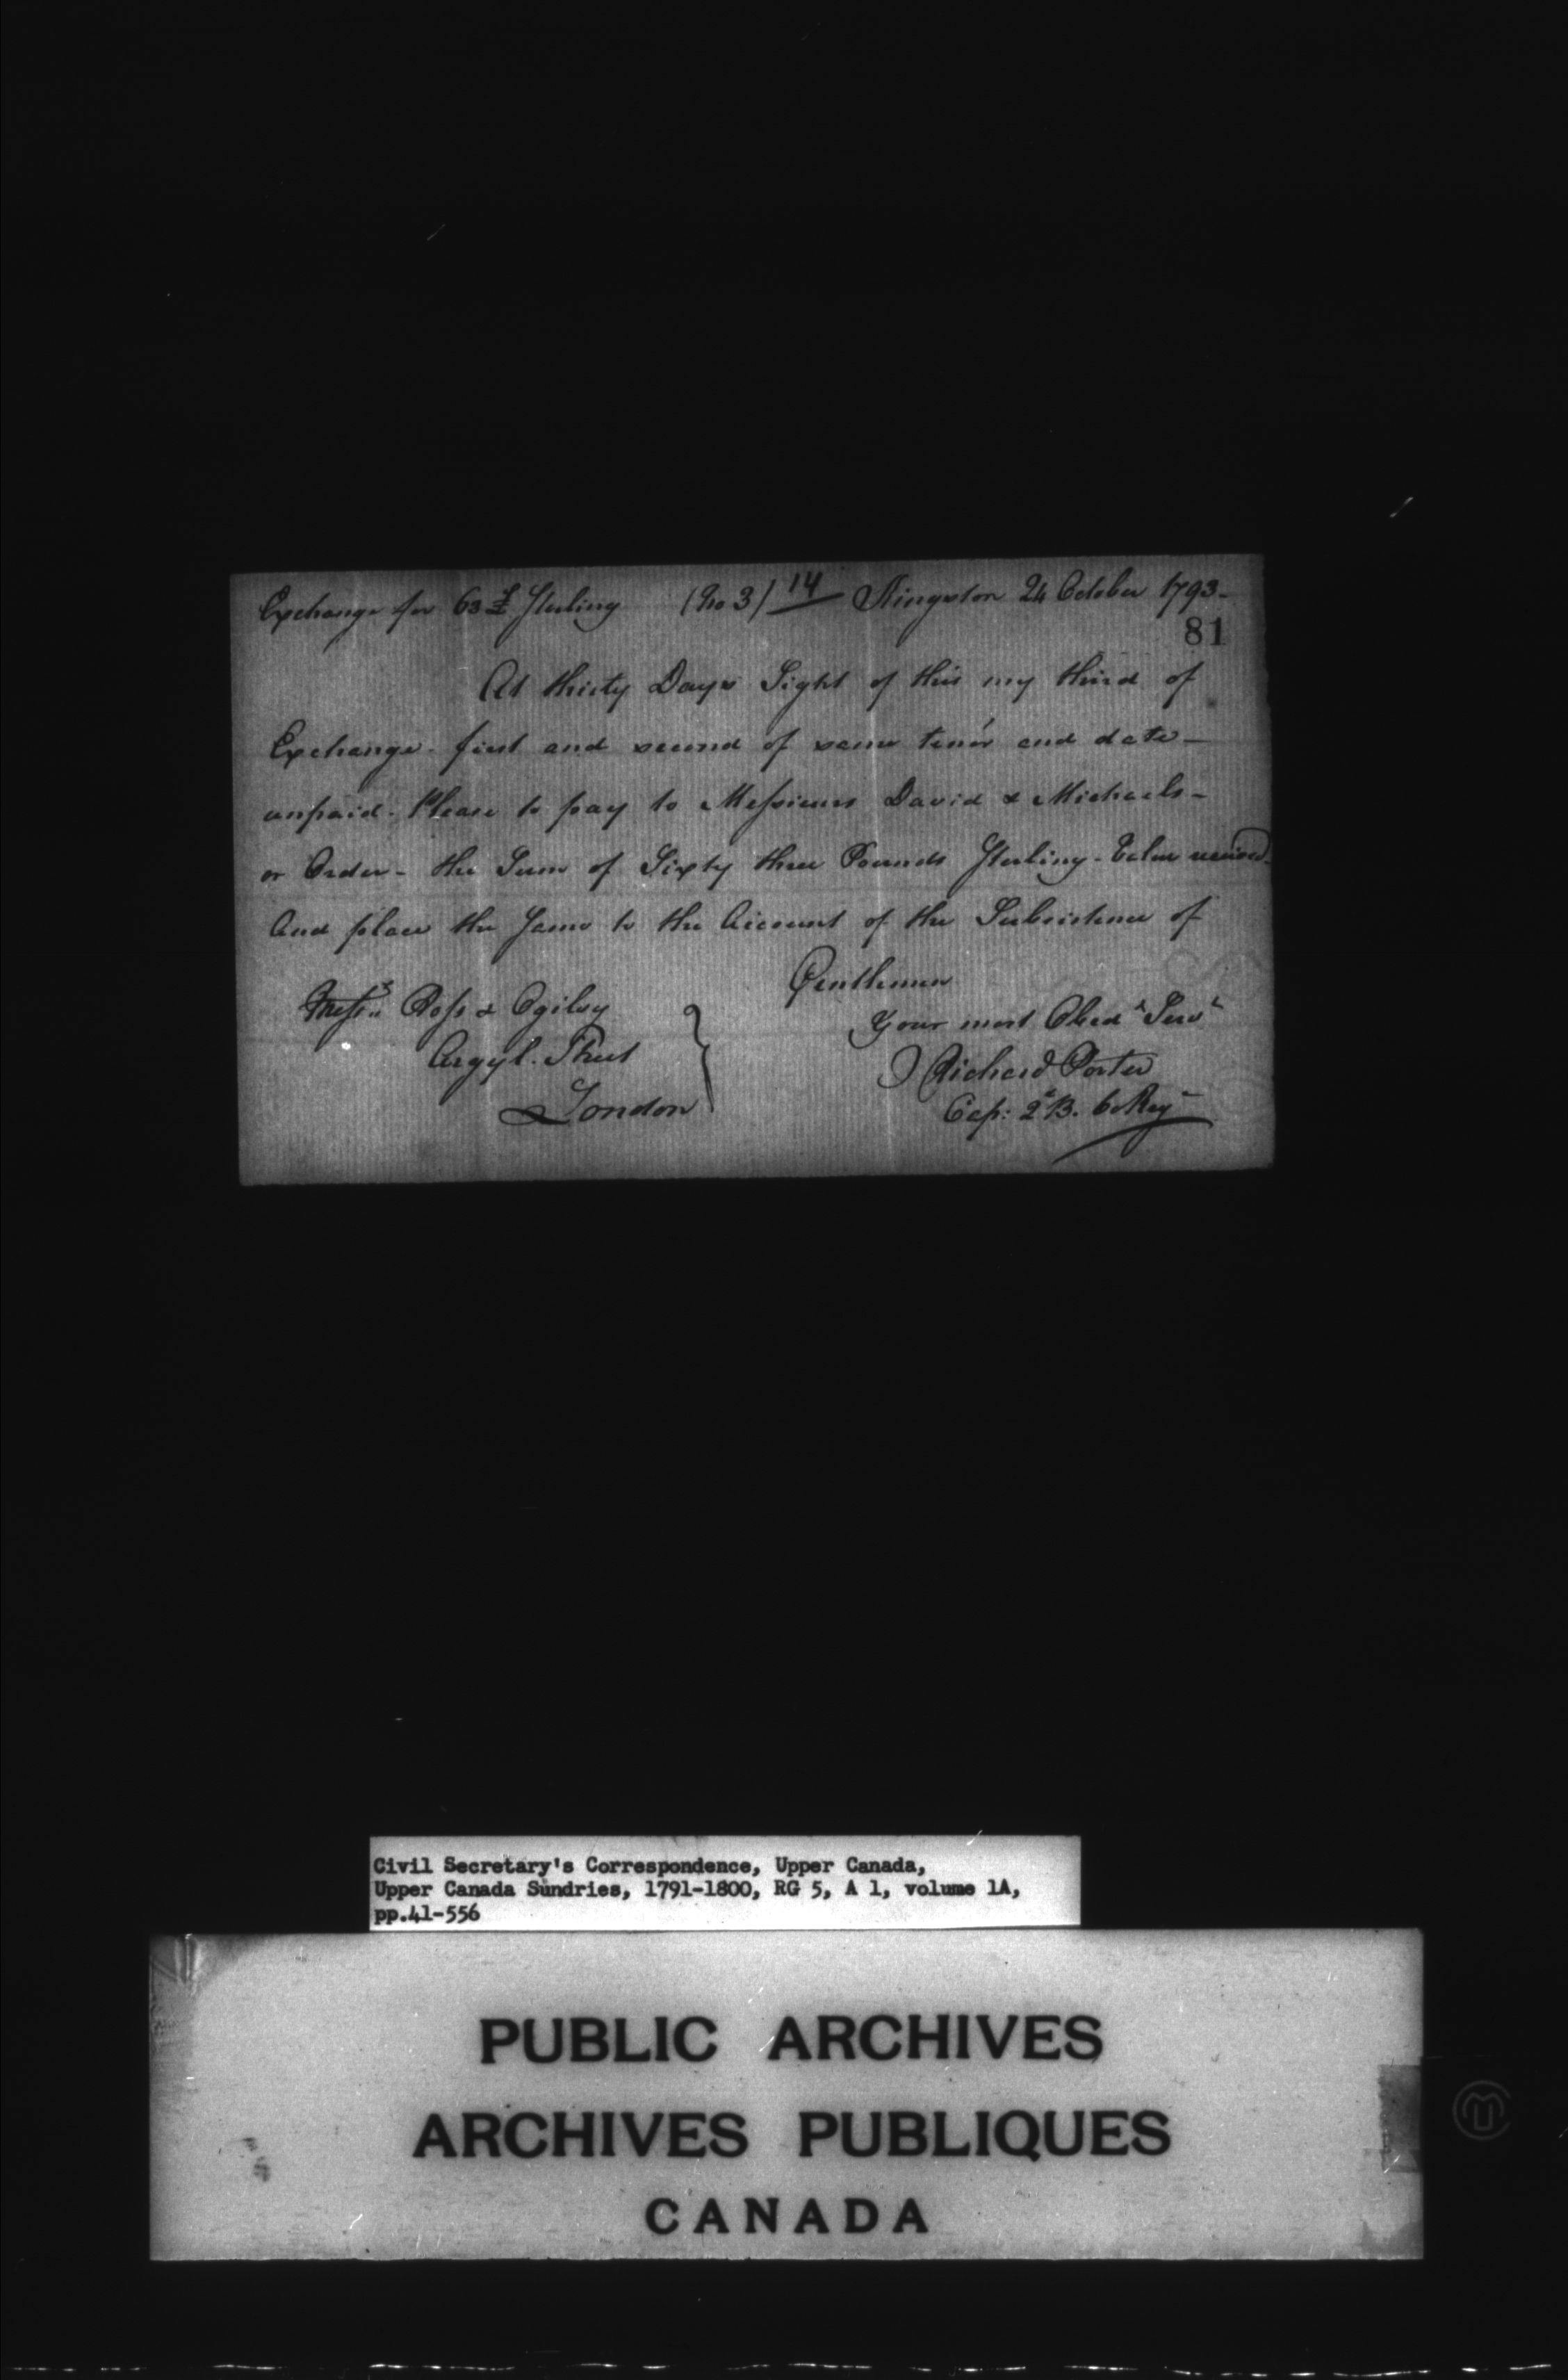 Exchange for 63 £ Sterling (No 3) 14 Kingston 24 October 1793-
81
At thirty Days Sight of this my third of
Exchange. first and second of same tenór and date-
unpaid. Please to pay to Messieurs David & Michaels-
or Order- the Sum of Sixty three Pounds Sterling- Value received-
And place the Same to the Account of the Subsistence of
Gentlemen
Messrs Ross & Ogilvy
Your most Obedt Servt
Argyl. Street
Richard Porter
London
Cap: 2d B. 60 Regt
Civil Secretary's Correspondence, Upper Canada,
Upper Canada Sundries, 1791-1800, RG 5, A 1, volume 1A,
pp.41-556
PUBLIC ARCHIVES
ARCHIVES PUBLIQUES
CANADA